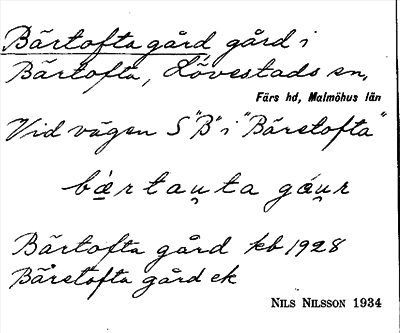 Bärtofta gård gård i
Bärtofta, Lövestads sn,
Färs hd, Malmöhus län
Vid vägen S "B" i "Bärstofta"
bæ̀rtau̯ta gáu̯r
Bärtofta gård kb 1928
Bärstofta gård ek
NILS NILSSON 1934